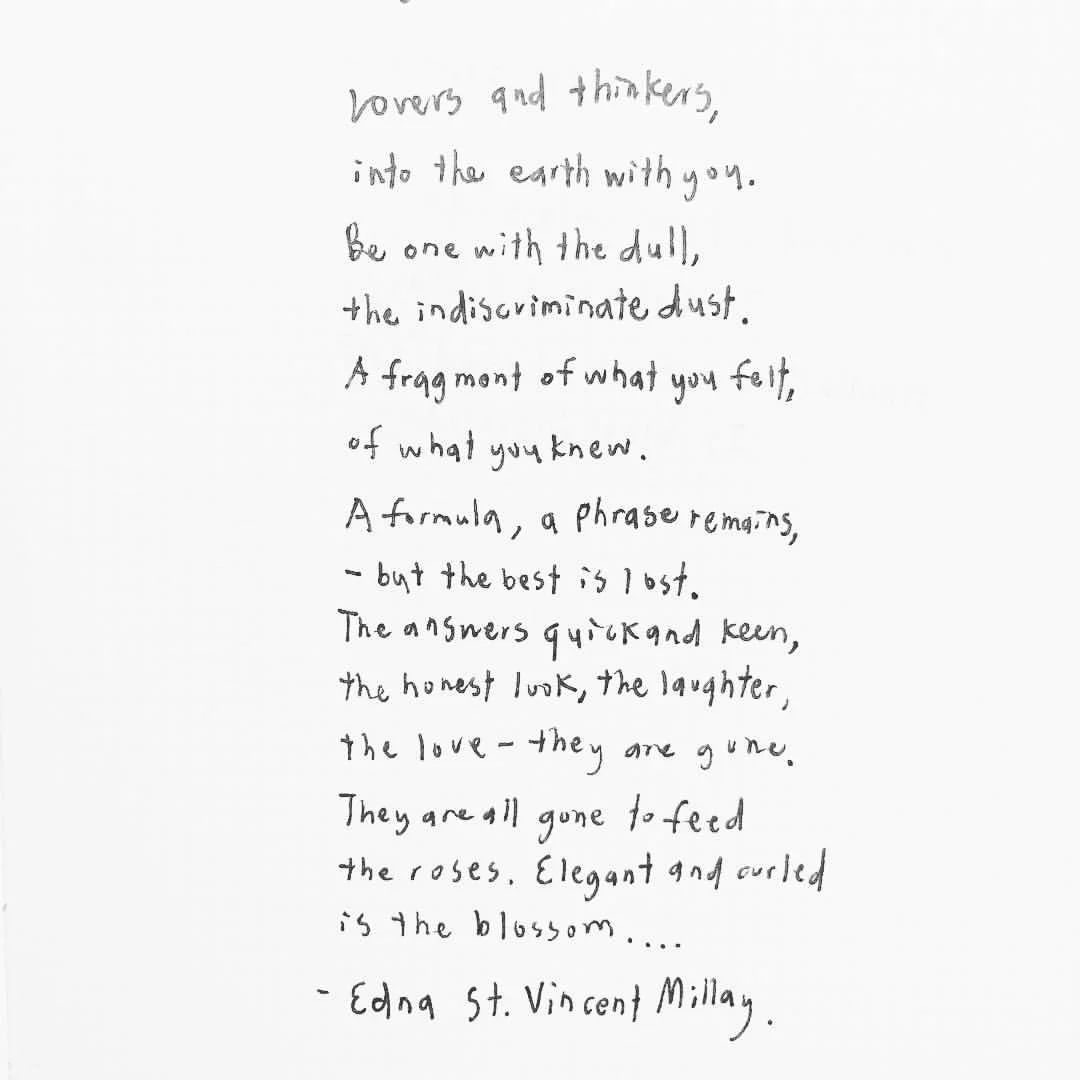 Lovers and thinkers,
into the earth with you.
Be one with the dull,
the indiscriminate dust.
A fragment of what you felt,
of what you knew.
A formula, a phrase remains,
- but the best is lost.
The answers quick and keen,
the honest look, the laughter,
the love - they are gone.
They are all gone to feed
the roses. Elegant and curled
is the blossom....
- Edna St. Vincent Millay.